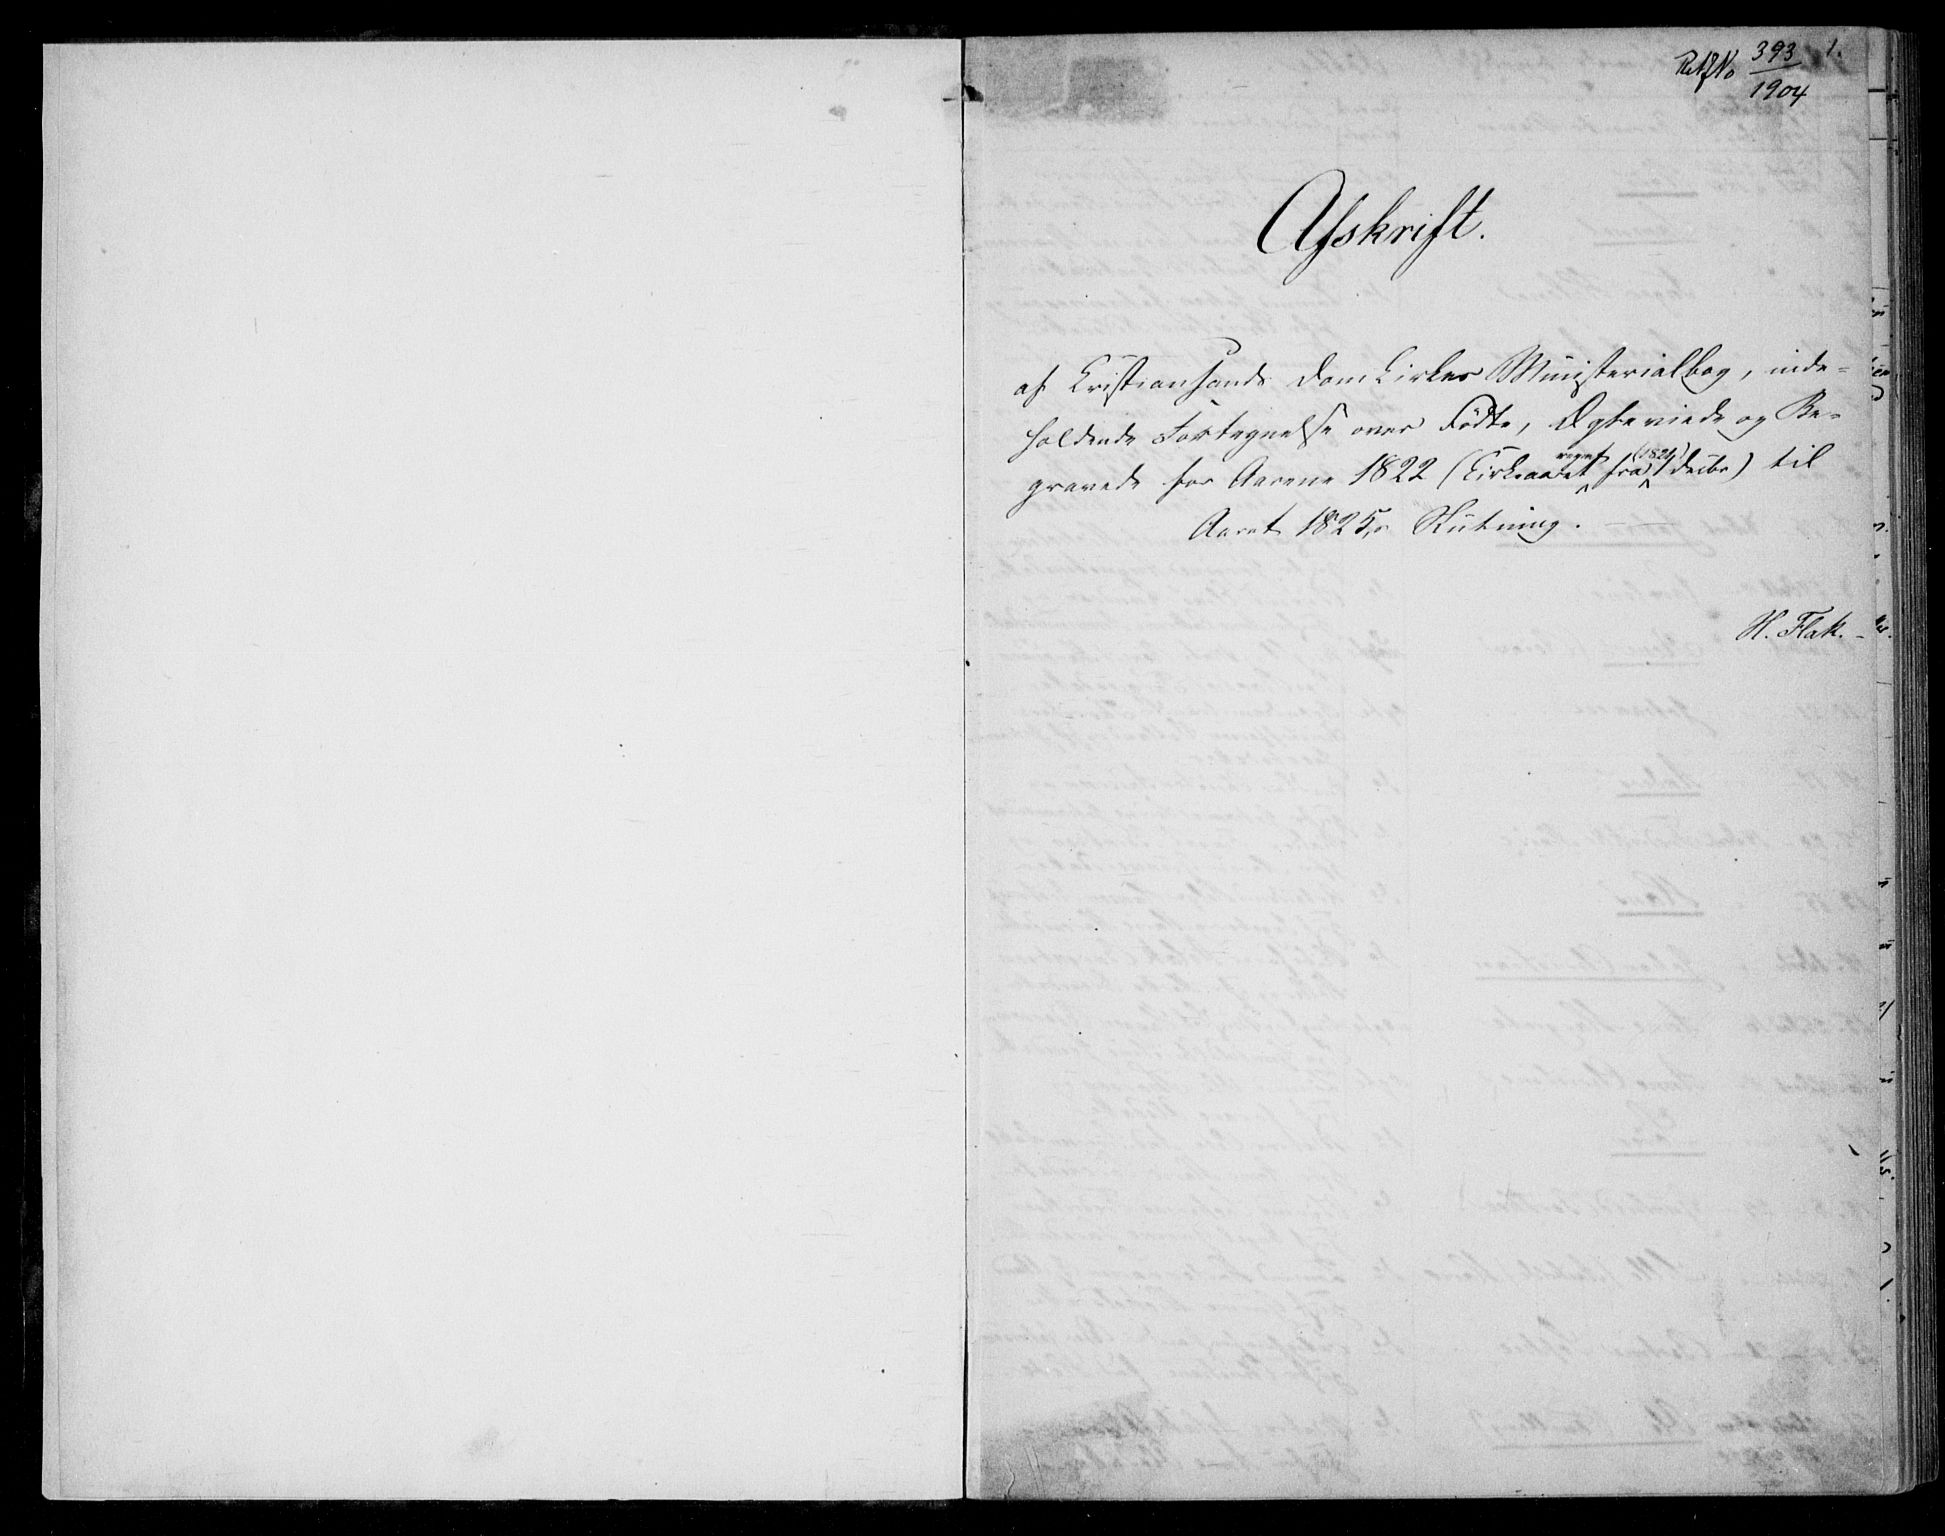 No 393/1904 1.
Afskrift.
af Christiansands DomKirkes Ministerialbog, inde=
holdende Fortegnelse over Födte, Ægteviede og Be=
gravede for Aarene 1822 (Kirkeaaret regnet fra (1821) 1 Decbr) til
Aaret 1825,s Slutning.
H. Flak.